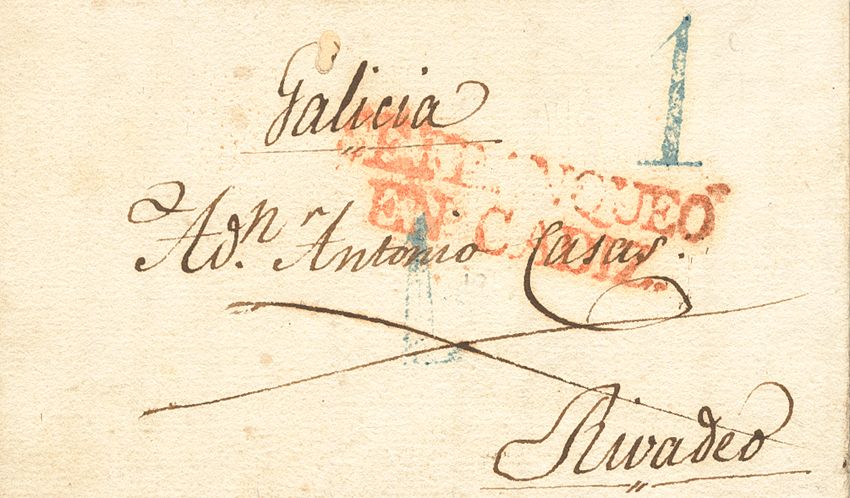 Galicia
1
FRANQUEO
EN CADIZ.
A Dn Antonio Casas.
1
Rivadeo